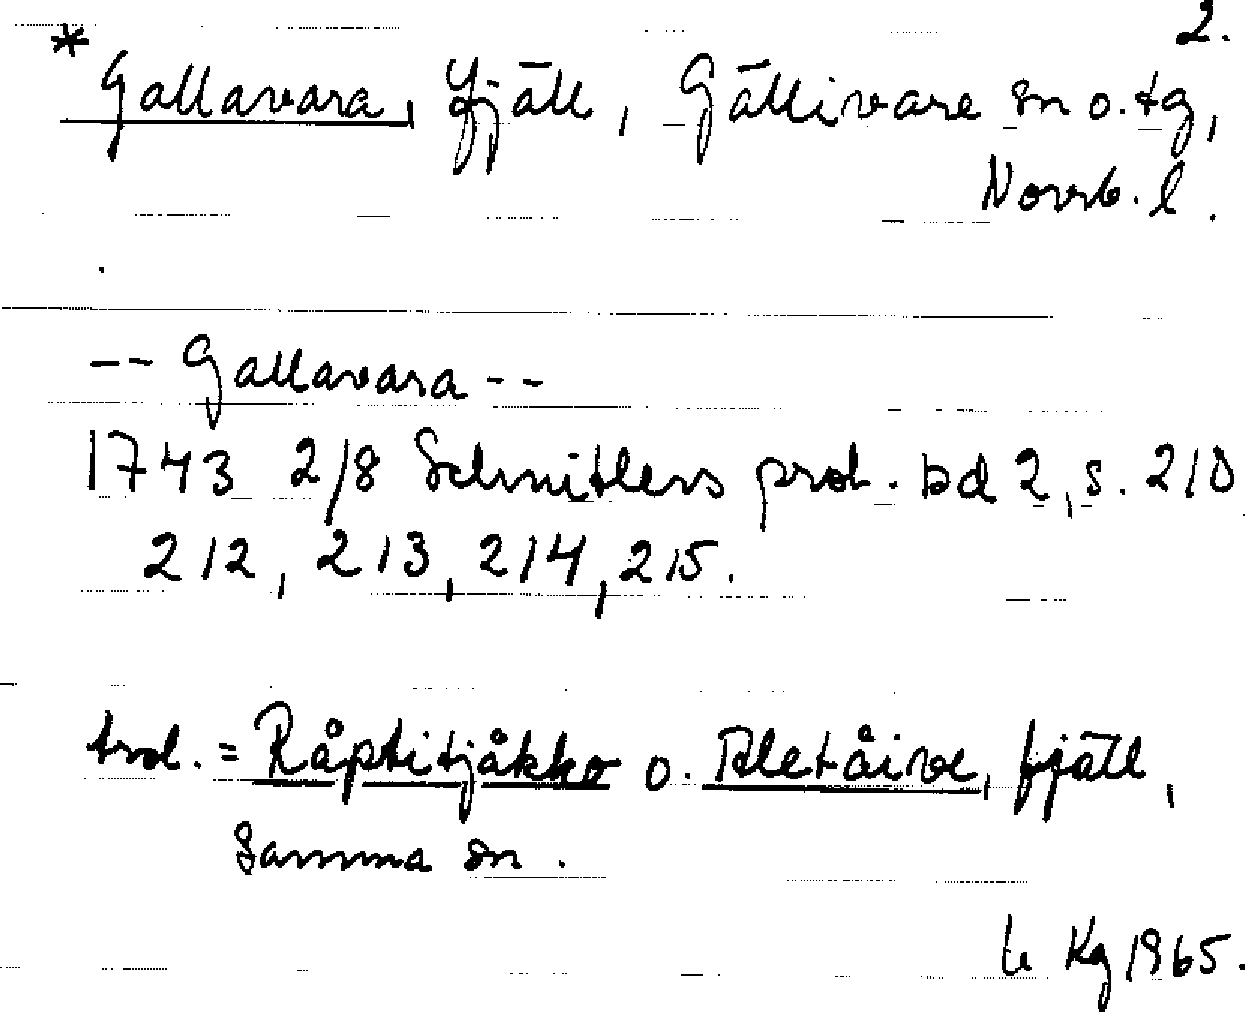 2.
* Gallavara, fjäll, Gällivare sn o. tg,
Norrb. l.
-- Gallavara --
1743 2/8 Schnitlers prot. bd 2, s. 210
212, 213, 214, 215.
trol. = Råptitjåkko o. Aletåive, fjäll,
samma sn.
Kg 1965.